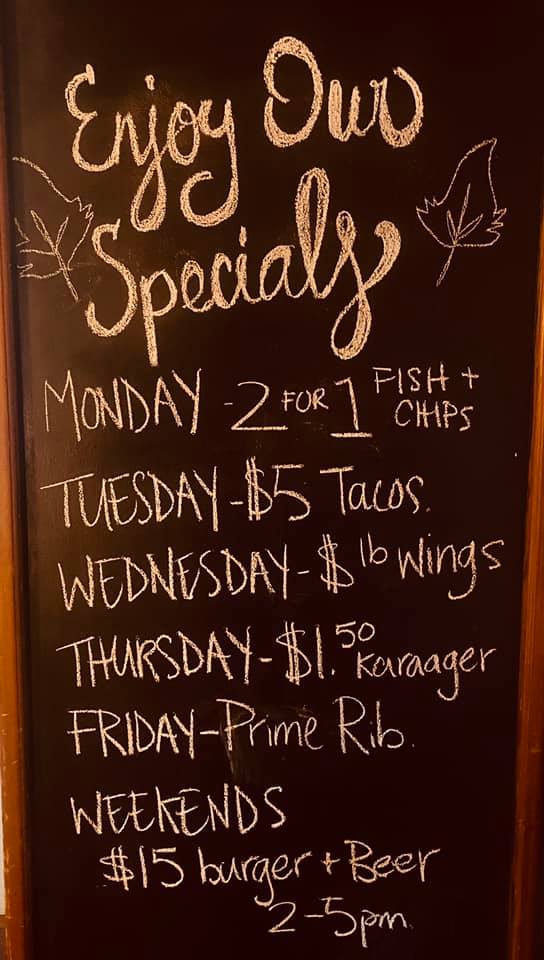 Enjoy Our
Specials
MONDAY - 2 FOR 1 FISH + CHIPS
TUESDAY - $5 Tacos.
WEDNESDAY - $ lb Wings
THURSDAY - $1.50 Karaager
FRIDAY - Prime Rib.
WEEKENDS
$15 burger + Beer
2-5pm